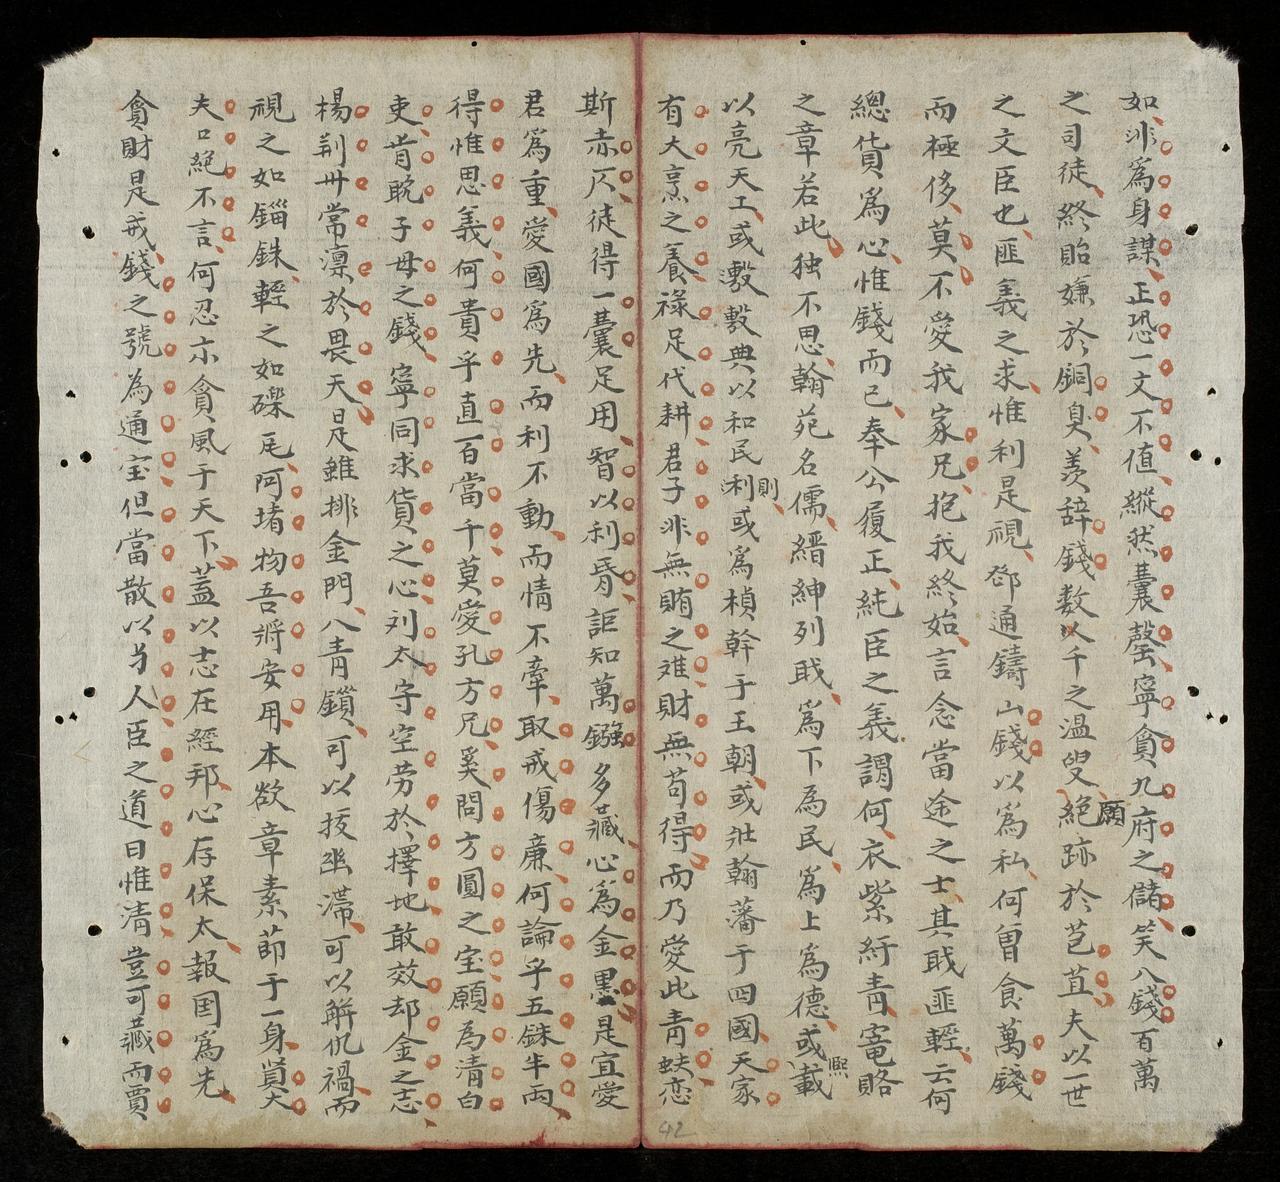 如非爲身謀正恐一文不值縱然囊罄寧貪九府之儲笑八錢百萬
之司徒終貽嫌於銅臭羡辞錢数以千之温叟願絕跡於苞苴夫以一世
之文臣也匪義之求惟利是視鄧通鑄山錢以爲私何曾食萬錢
而極侈莫不愛我家兄抱我終始言念當途之士其戝匪輕云何
總貨爲心惟錢而已奉公履正純臣之義謂何衣紫紆青竉賂
之章若此独不思翰苑名儒縉紳列戝爲下為民爲上爲德或熙載
以亮天工或敷敷典以和民則利或爲楨幹于王朝或壯翰藩于四國天家
有大烹之養祿足代耕君子非無賄之难財無苟得而乃愛此青蚨恋
斯赤仄徒得一囊足用智以利昏詎知萬鏹多藏心爲金墨是宜愛
君爲重愛國爲先而利不動而情不牽取戒傷廉何論乎五銖半両
得惟思義何貴乎直百當千莫愛孔方兄奚問方圓之宝願為清白
吏肯睨子母之錢寧同求貨之心刘太守空劳於擇地敢效却金之志
楊荊州常凛於畏天是雖排金門入青鎖可以拔幽滯可以解仇禍而
視之如錙銖輕之如礫瓦阿堵物吾將安用本欲章素莭于一身貲大
夫口絕不言何忍示貪風于天下葢以志在經邦心存保太報国爲先
貪財是戒錢之號為通宝但當散以与人臣之道曰惟清豈可藏而賈